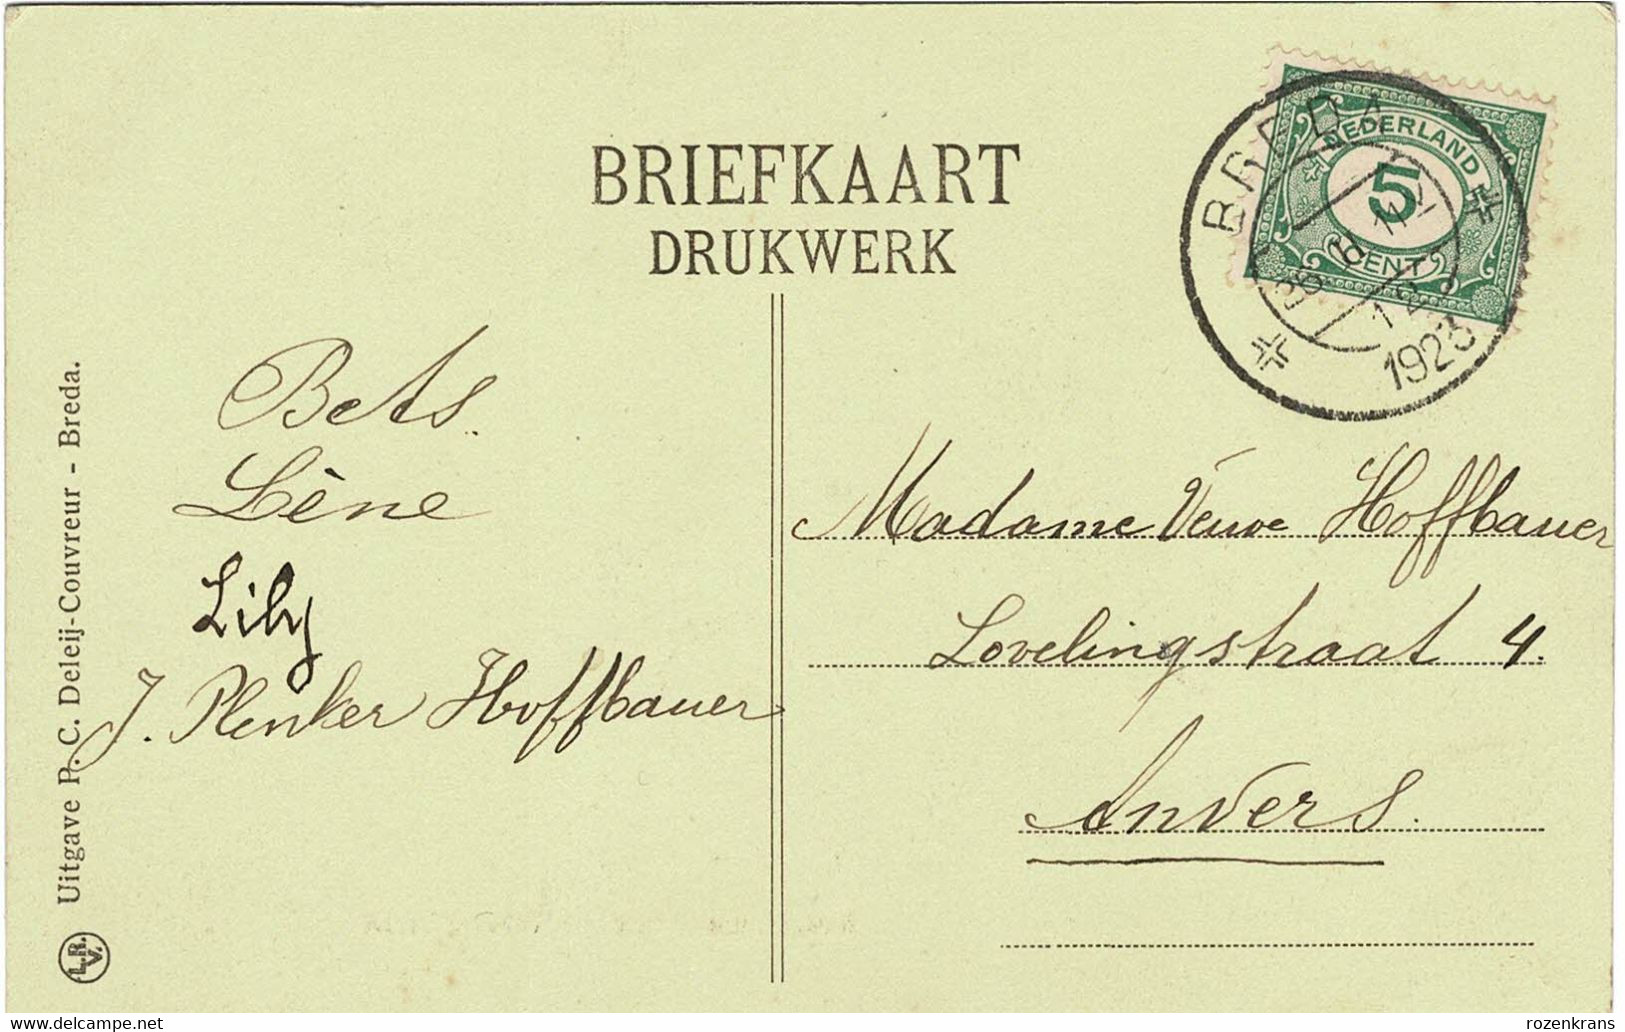 BRIEFKAART
DRUKWERK
NEDERLAND
5
CENT
BREDA
1923
Bets.
Lène
Lily
J. Plenker Hoffbauer
Madame Veuve Hoffbauer
Lovelingstraat 4.
Anvers.
Uitgave P. C. Deleij-Couvreur - Breda.
L.R.
V.
delcampe.net
rozenkrans